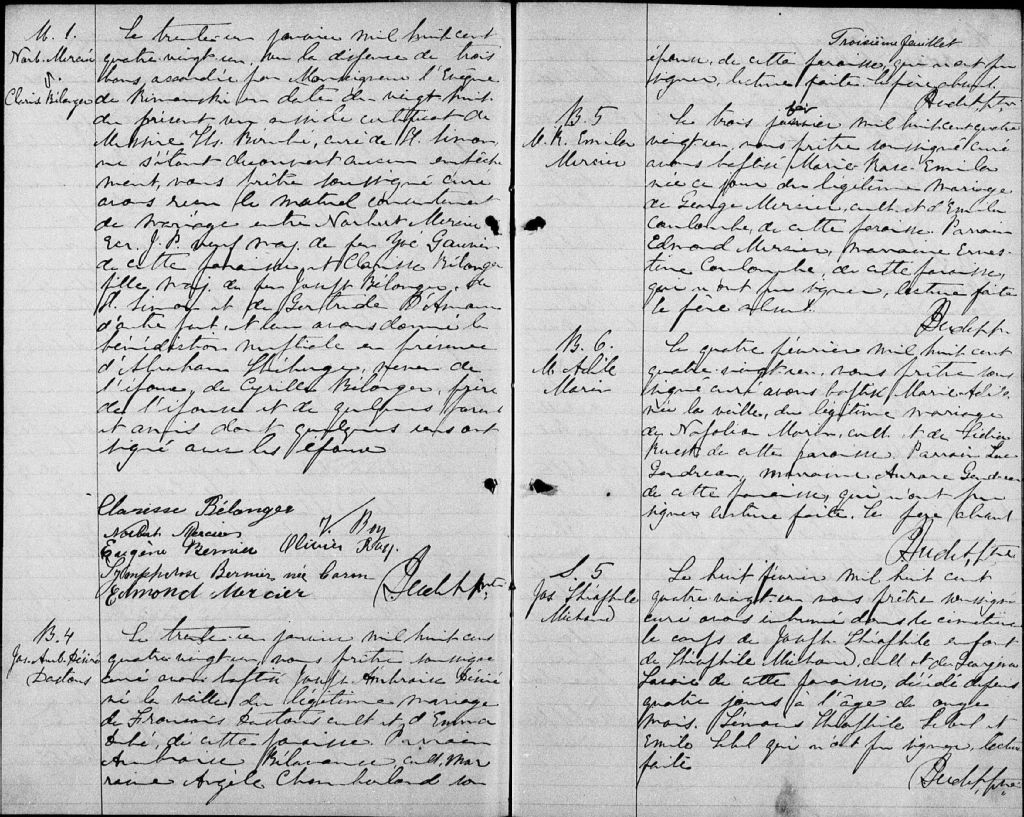 M. 1.
Norb. Mercier
&
Claris Bélanger
Le trente-un janvier mil huit cent
quatre vingt un, vu la dispense de trois
bans, accordée par Monseigneur l'Evêque
de Rimouski en date du vingt huit
du présent, vu aussi le certificat de
Messire curé de St. Simon,
ne s'étant découvert aucun empêche
ment, nous prêtre soussigné curé
avons reçu le mutuel consentement
de mariage entre Norbert Mercier
Ecr. J. P. veuf maj. de feu
de cette paroisse, et Clarisse Bélanger
fille maj. de feu Joseph Bélanger, de
St Simon et de Gertrude D'Amour
d'autre part, et leur avons donné la
bénédiction nuptiale en présence
d'Abraham neveu de
l'époux, de Cyrille Bélanger, frère
de l'épouse et de quelques parents
et amis dont quelques uns ont
signé avec les époux
Clarisse Bélanger
Norbert Mercier Roy
Eugène Bernier Olivier Roy.
Symphorose Bernier née Caron
Edmond Mercier ptre
B. 4
Jos. Amb. Désiré
Dastous
Le trente-un janvier mil huit cent
quatre vingt un, nous prêtre soussigné
curé avons baptisé Joseph Ambroise Désiré
né la veille du légitime mariage
de François Dastous cult. et d'Emma
de cette paroisse. Parrain
Ambroise cult. mar
raine Angèle Chamberland son
Troisième feuillet
épouse, de cette paroisse, qui n'ont pu
signer, lecture faite. le père absent.
ptre
B. 5
M. R. Emilia
Mercier
Le trois février mil huit cent quatre
vingt un, nous prêtre soussigné curé
avons baptisé Marie Rose Emilia
née ce jour du légitime mariage
de George Mercier, cult. et d'Emilie
Coulombe, de cette paroisse. Parrain
Edmond Mercier, marraine Ernes-
tine Coulombe, de cette paroisse,
qui n'ont pu signer, lecture faite
le père absent.
ptre
B. 6.
M.
Morin
Le quatre février mil huit cent
quatre vingt un, nous prêtre sous
signé curé avons baptisé Marie
née la veille, du légitime mariage
de Napoléon Morin, cult. et de
Ruest de cette paroisse. Parrain Luc
Gendreau, marraine Aurore Gendreau
de cette paroisse, qui n'ont pu
signer lecture faite. Le père absent
ptre
S. 5
Jos. Théophile
Michaud
Le huit février mil huit cent
quatre vingt un nous prêtre soussigné
curé avons inhumé dans le cimetière
le corps de Joseph Théophile enfant
de Théophile Michaud, cult. et de Georgina
Lavoie de cette paroisse, décédé depuis
quatre jours à l'âge de onze
mois. Témoins Théophile Lebel et
Emile Lebel qui n'ont pu signer, lecture
faite
ptre